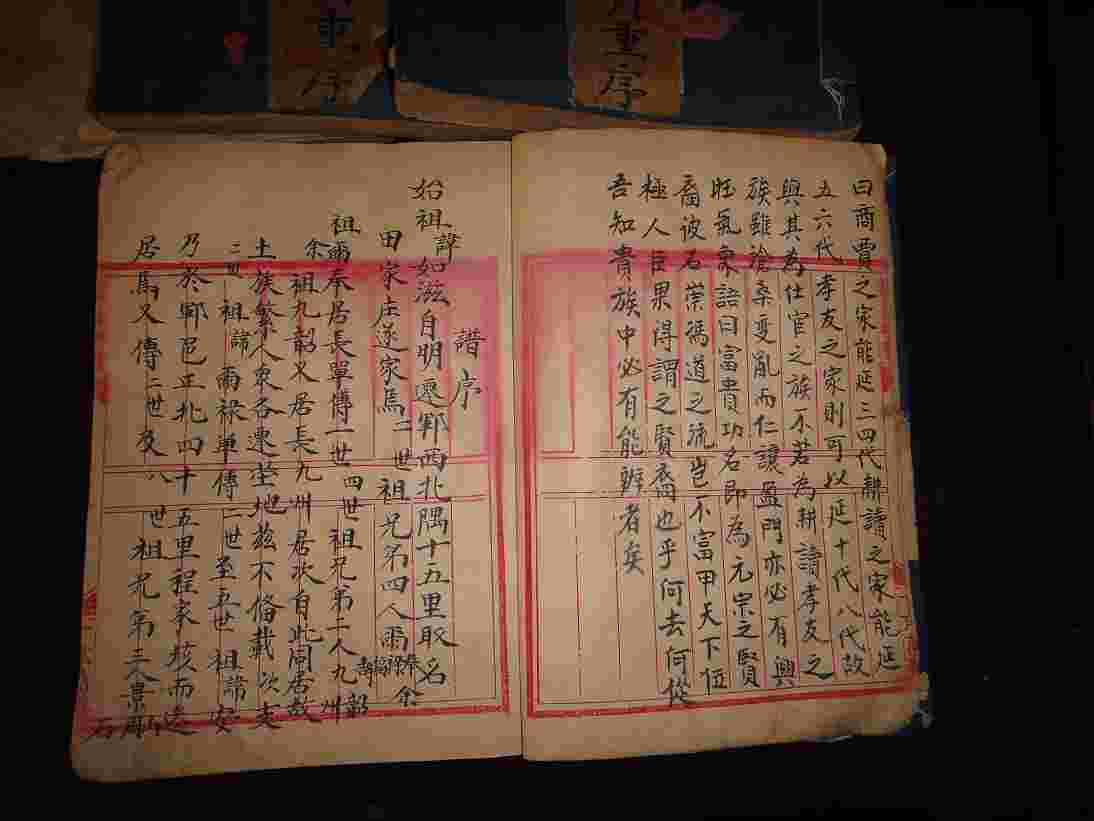 重序
重序
曰商賈之家能延三四代耕讀之家能延
五六代孝友之家則可以延十代八代故
與其為仕宦之族不若為耕讀孝友之
族雖滄桑變亂而仁讓盈門亦必有興
旺氣象語曰富貴功名即為元宗之賢
裔彼石崇馮道之流豈不富甲天下位
極人臣果得謂之賢裔也乎何去何從
吾知貴族中必有能辨者矣
譜序
始祖諱如滋自明遷鄆西北隅十五里取名
田家庄遂家焉二世祖兄弟四人爾奉祿壽余
祖爾奉居長單傳一世四世祖兄弟二人九韶九州
余祖九韶又居長九州居次自此同居故
土族繁人衆各遷塋地茲不俻載次支
二世祖諱爾祿單傳二世至五世祖諱安
乃於鄆邑正北四十五里程家垓而遷
居焉又傳二世及八世祖兄弟三人景周石